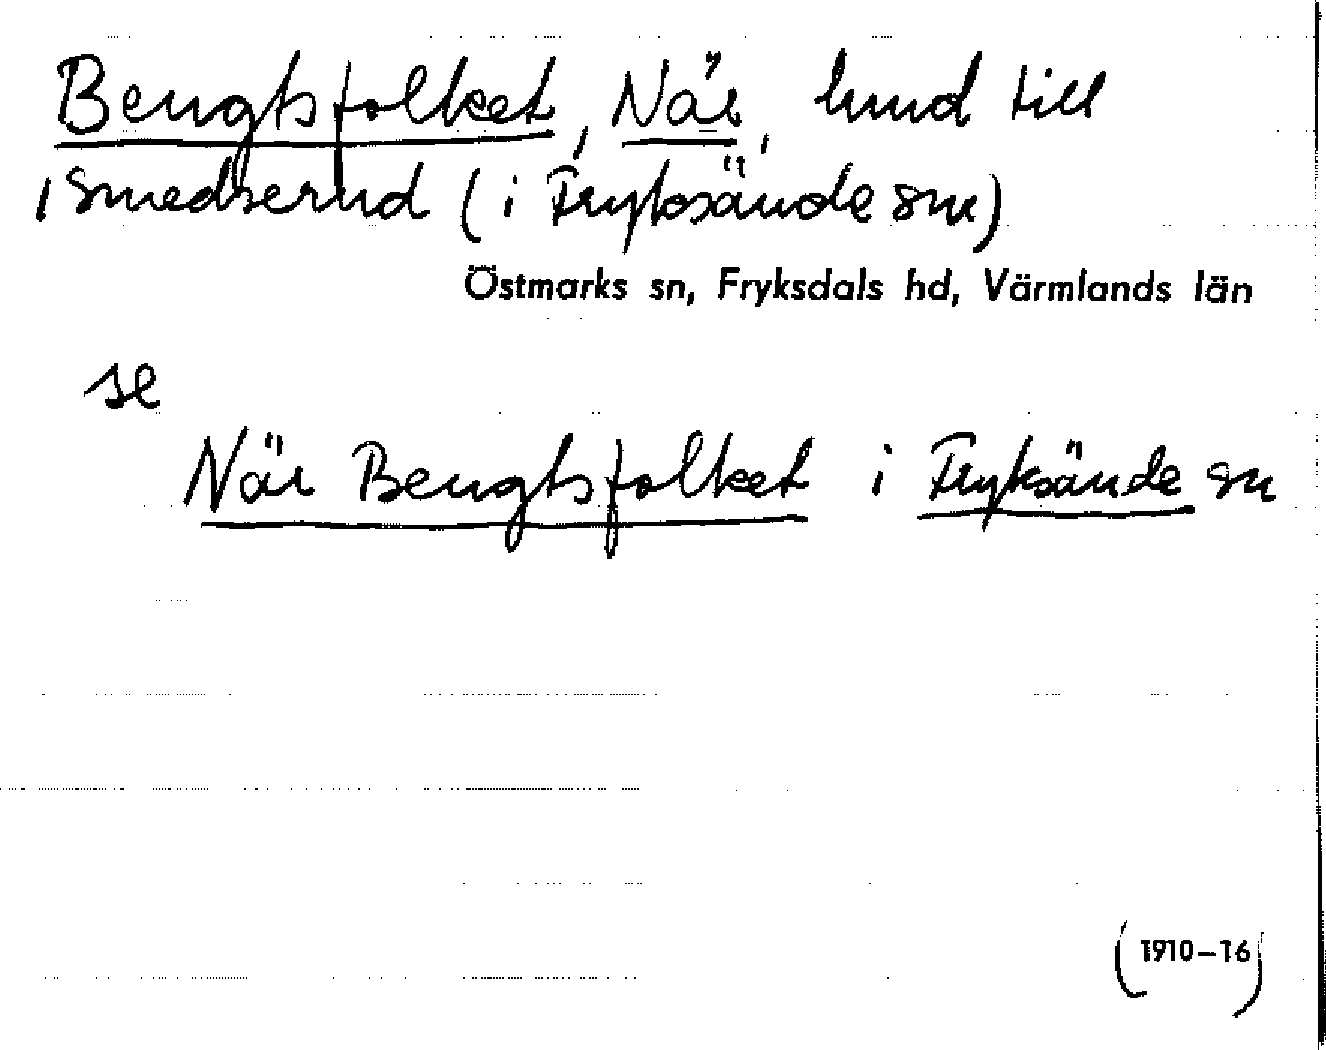 Bengtsfolket, När, hmd till
Smedserud (i Fryksände sn)
Östmarks sn, Fryksdals hd, Värmlands län
se
När Bengtsfolket i Fryksände sn
(1910–16)